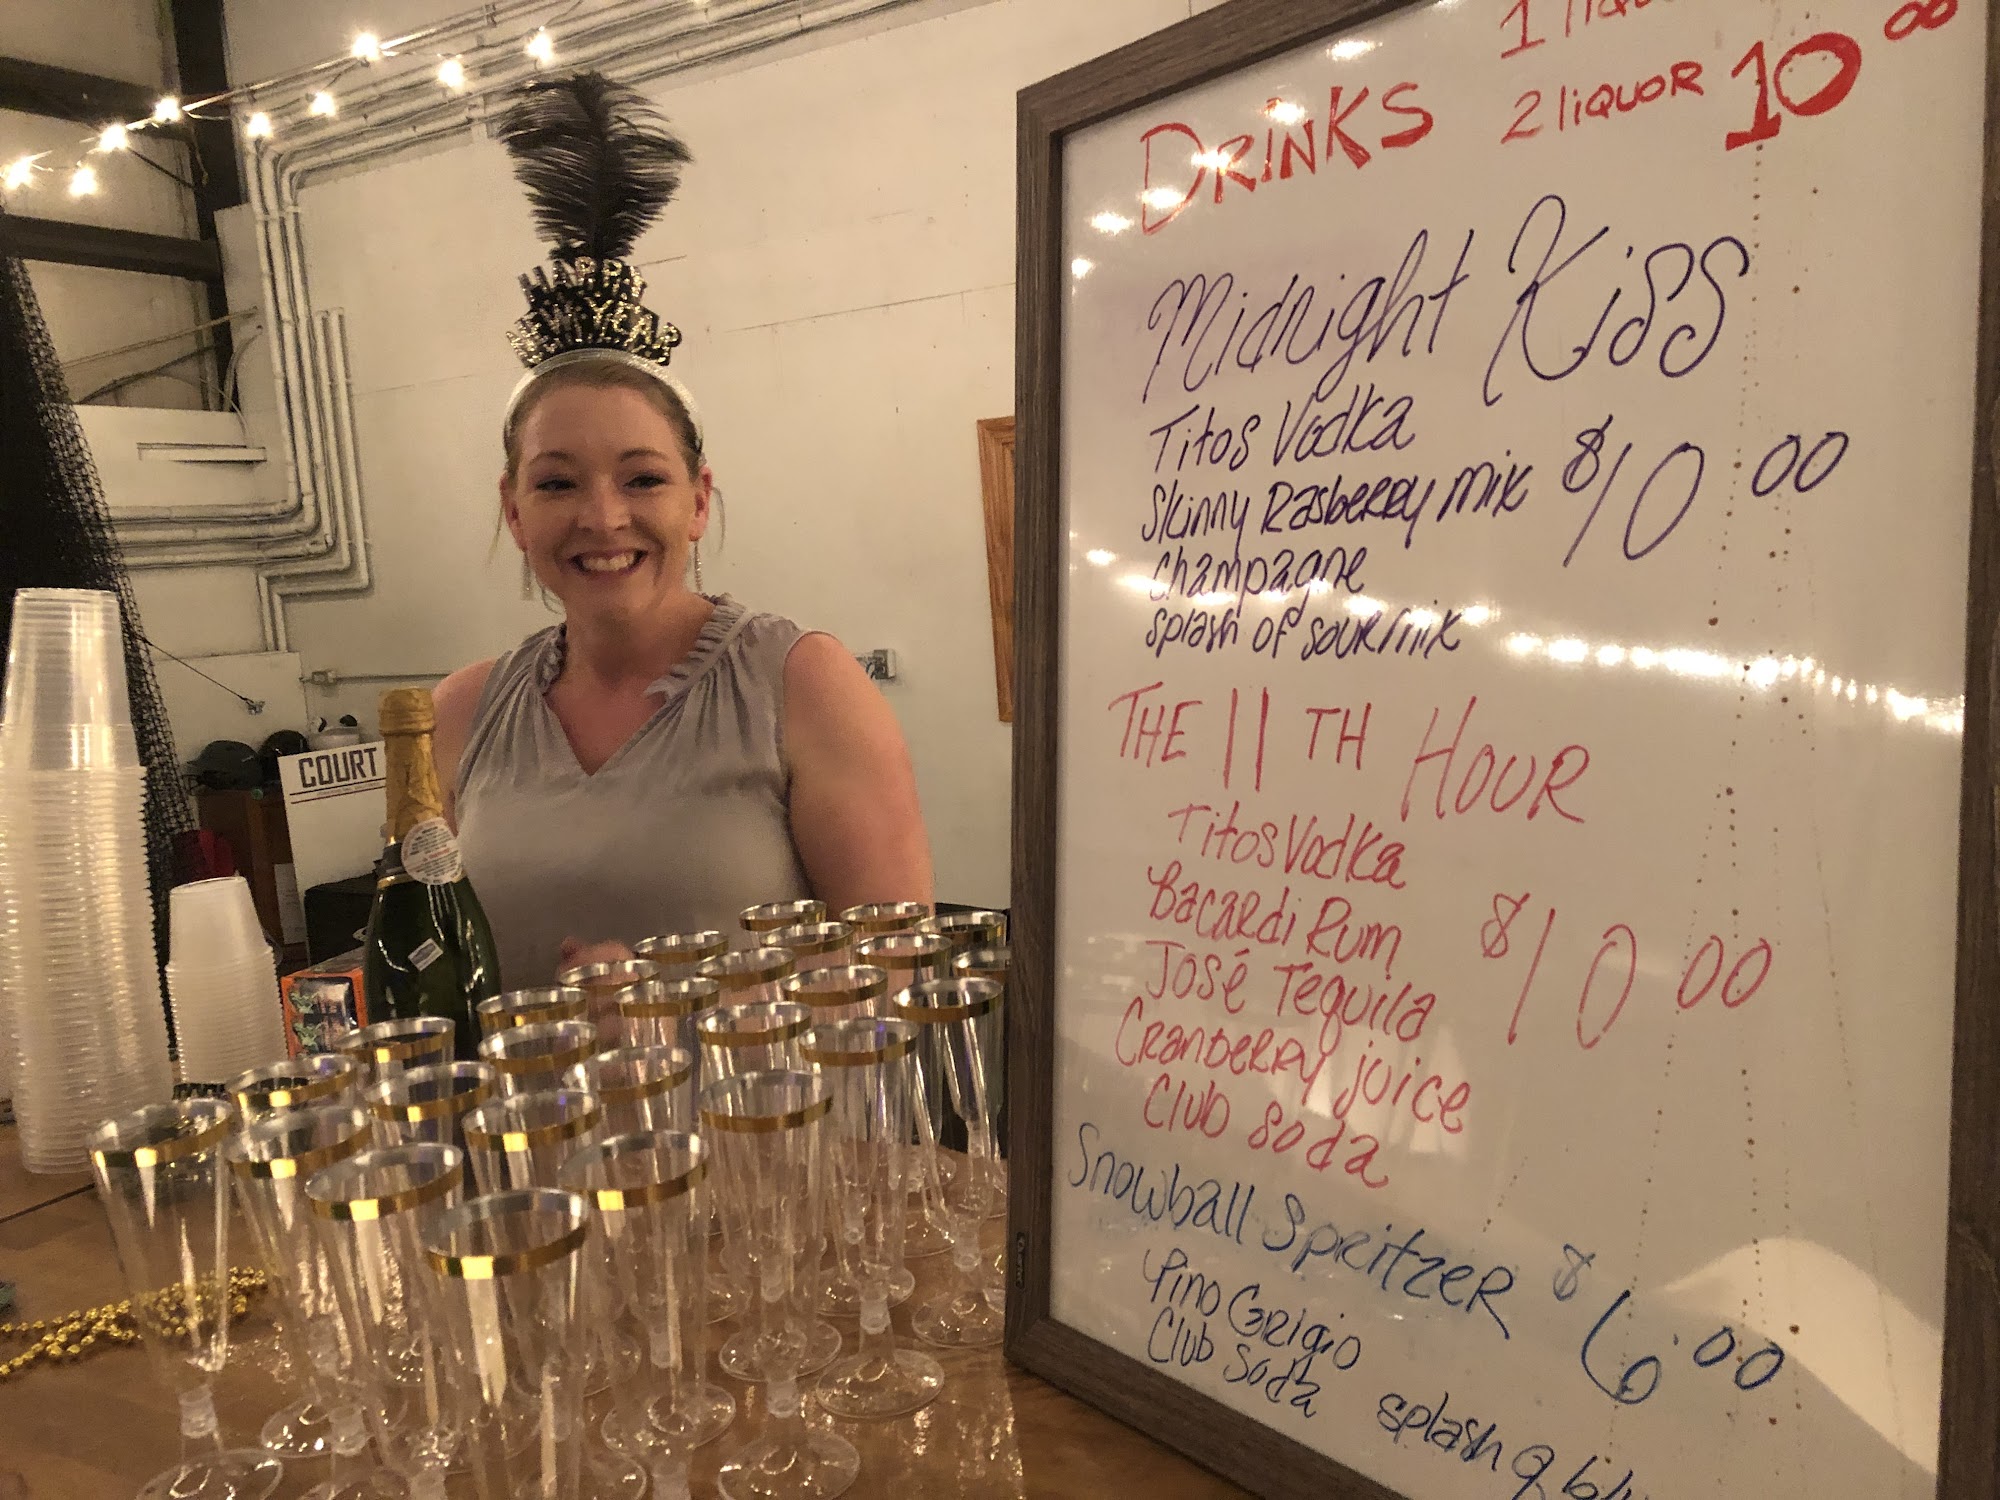 HAPPY
NEW YEAR
COURT
DRINKS
2 liquor 10 00
Midnight Kiss
Titos Vodka
Skinny Rasberry mix $10 00
champagne
splash of sour mix
THE 11TH HOUR
Titos Vodka
Bacardi Rum
José Tequila $10 00
Cranberry juice
Club soda
Snowball Spritzer $6.00
Pino Grigio
Club Soda
splash of